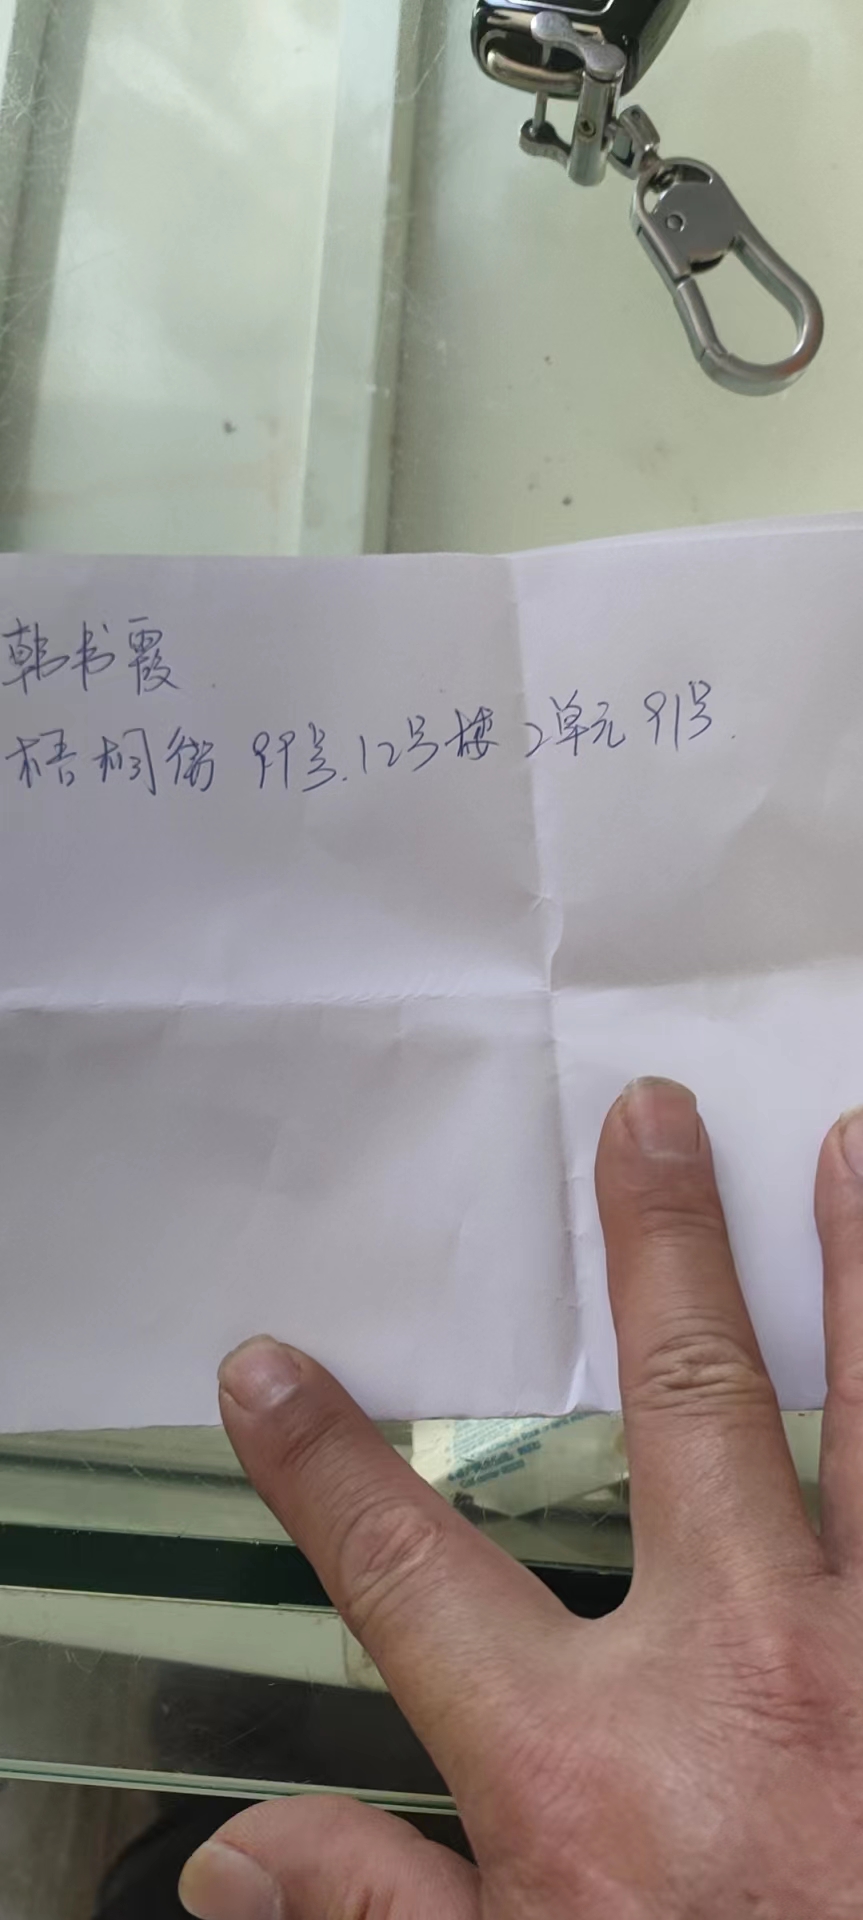 韩书霞
梧桐街99号.12号楼2单元91号.